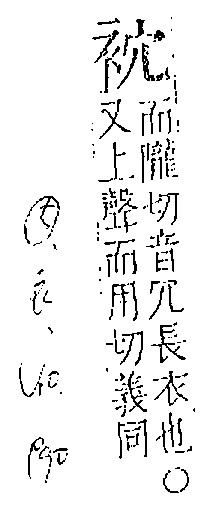 而隴切音冗長衣也○
又上聲而用切義同
衣、
P90